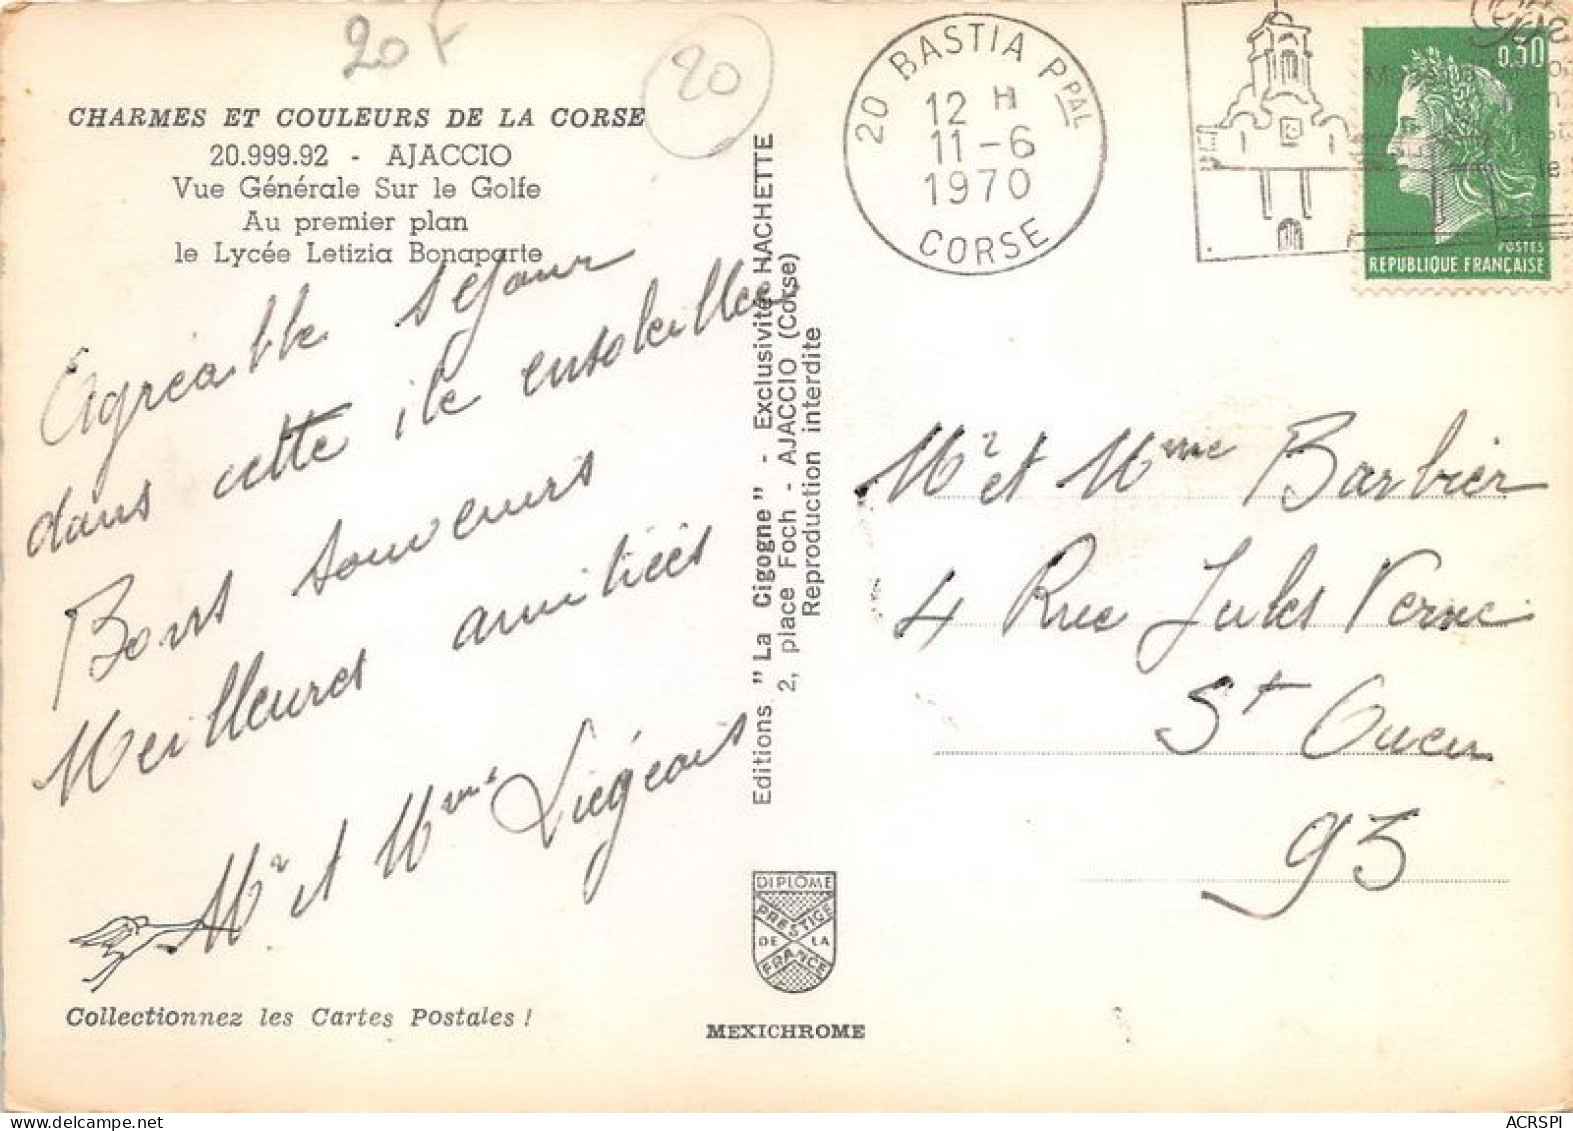 20 F
20
CHARMES ET COULEURS DE LA CORSE
20.999.92 - AJACCIO
Vue Générale Sur le Golfe
Au premier plan
le Lycée Letizia Bonaparte
Agréable séjour
dans cette île ensoleillée,
Bons souvenirs
Meilleures amitiées
Mr et Mme Liégeois
Collectionnez les Cartes Postales !
Editions "La Cigogne" - Exclusivité HACHETTE
2, place Foch - AJACCIO (Corse)
Reproduction interdite
DIPLÔME
PRESTIGE
DE LA
FRANCE
MEXICHROME
20 BASTIA PPAL
12 H
11-6
1970
CORSE
0,30
POSTES
REPUBLIQUE FRANÇAISE
Mr et Mme Barbier
4 Rue Jules Verne
St Ouen
93
delcampe.net
ACRSPI